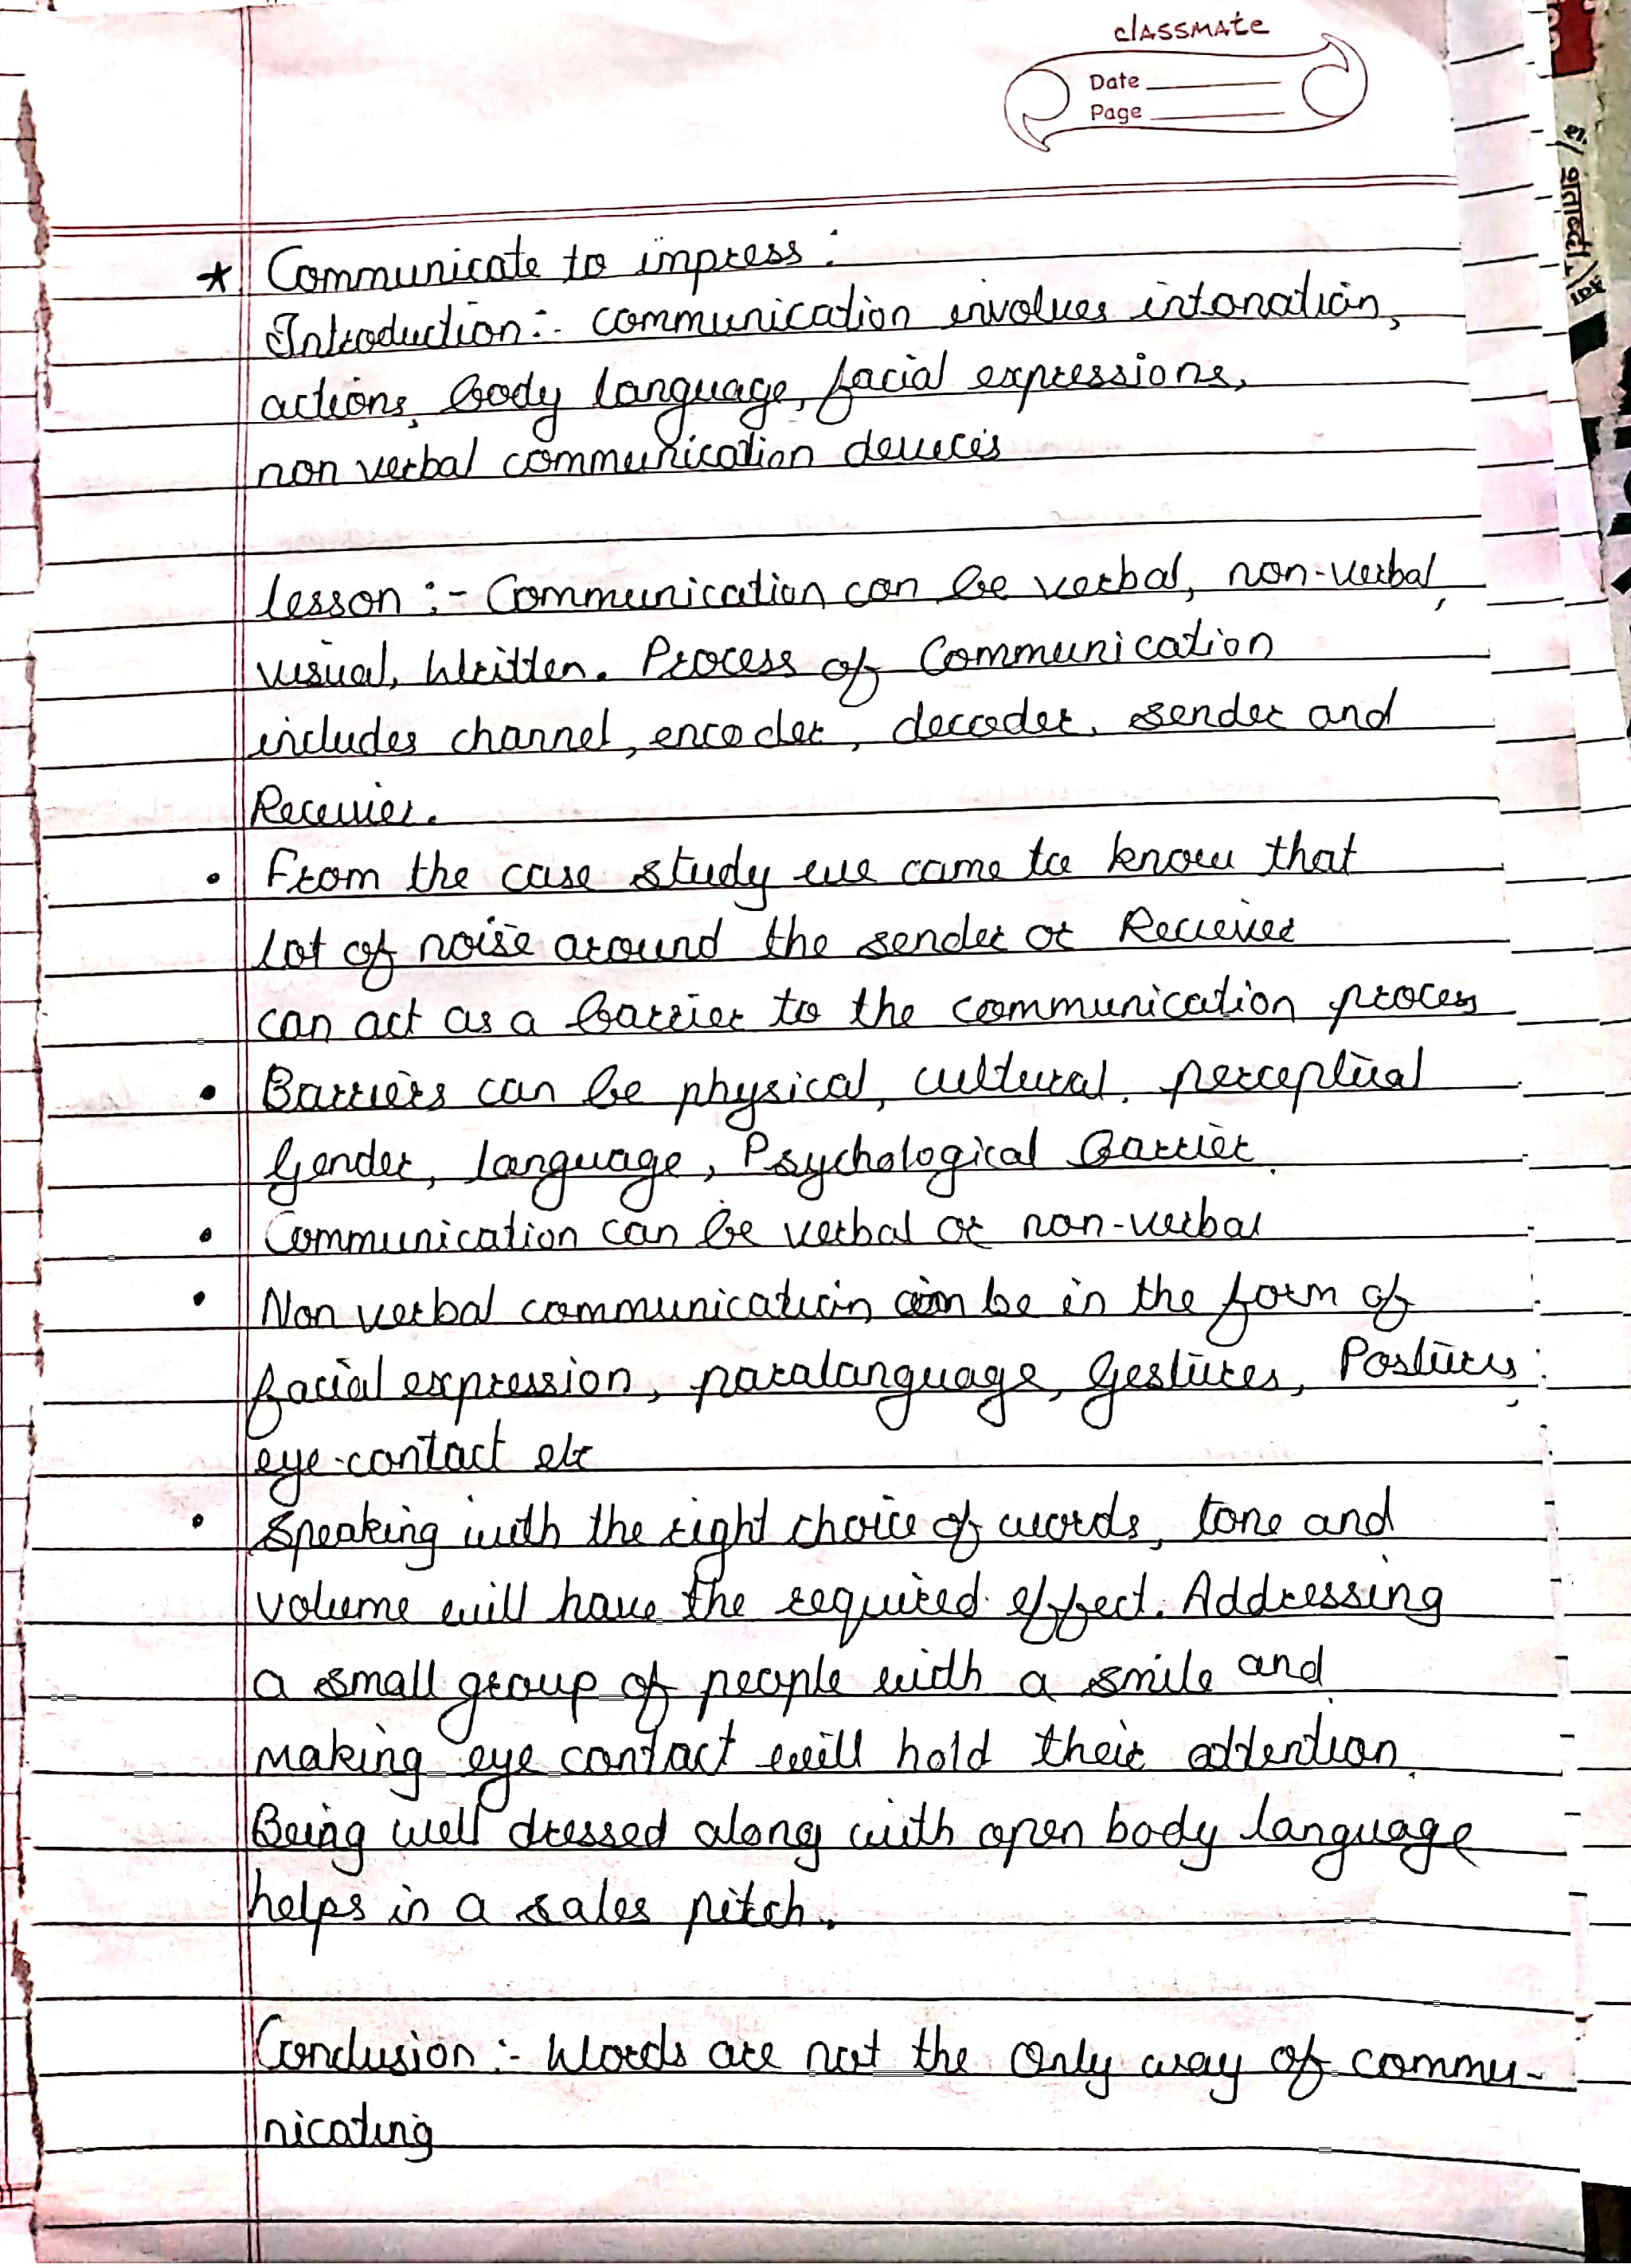 classmate
Date
Page
* Communicate to impress :
Introduction :- communication involves intonation,
actions, body language, facial expressions,
non verbal communication devices
lesson :- Communication can be verbal, non-verbal,
visual, Written. Process of Communication
includes channel, encoder, decoder, sender and
Receiver.
• From the case study we came to know that
lot of noise around the sender or Reciever
can act as a barrier to the communication process
• Barriers can be physical, cultural, perceptual
Gender, language, Psychological Barrier.
• Communication can be verbal or non-verbal
• Non verbal communication can be in the form of
facial expression, paralanguage, Gestures, Postures,
eye-contact etc
• Speaking with the right choice of words, tone and
volume will have the required effect. Addressing
a small group of people with a smile and
making eye contact will hold their attention.
Being well dressed along with open body language
helps in a sales pitch.
Conclusion :- Words are not the only way of commu-
nicating